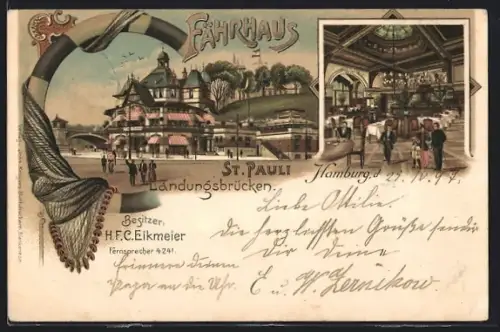 FÄHRHAUS
ST. PAULI
Landungsbrücken.
Hamburg, d. 25. 10. 97.
Besitzer,
H.F.C. Eikmeier
Fernsprecher 4241.
Liebe Ottilie.
Die herzlichsten Grüße sendet
Dir Deine
E. u. W. Zernikow.
Erinnere Deinen
Papa an die Uhr.